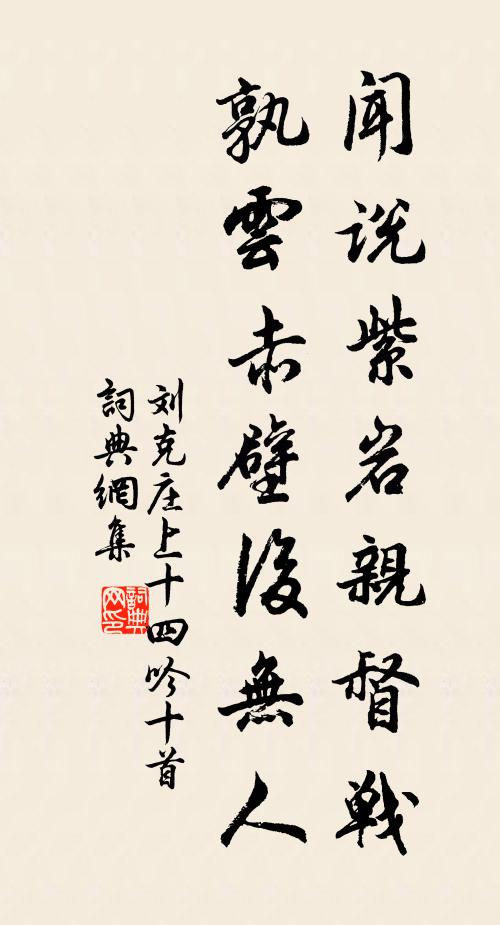 闻说紫岩亲督戦
孰雲赤壁後無人
刘克庄上十四吟十首
詞典網集
詞典网印